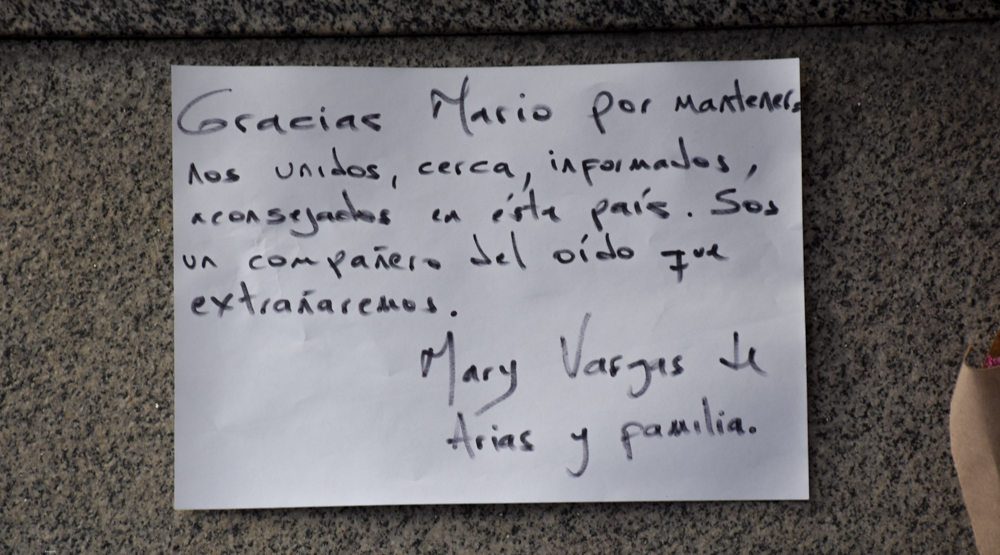 Gracias Mario por mantener
nos unidos, cerca, informados,
aconsejados en éste país. Sos
un compañero del oído que
extrañaremos.
Mary Vargas de
Arias y familia.